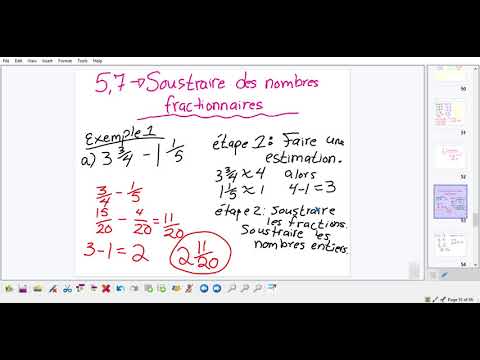 View Insert Format Tools Add-ons Help
5,7 → Soustraire des nombres
fractionnaires
Exemple 1
a) 3 3/4 - 1 1/5
3/4 - 1/5
15/20 - 4/20 = 11/20
3-1 = 2
2 11/20
étape 1: Faire une
estimation.
3 3/4 ≈ 4 alors
1 1/5 ≈ 1 4-1 = 3
étape 2: soustraire
les fractions.
Soustraire les
nombres entiers.
50
51
52
53
54